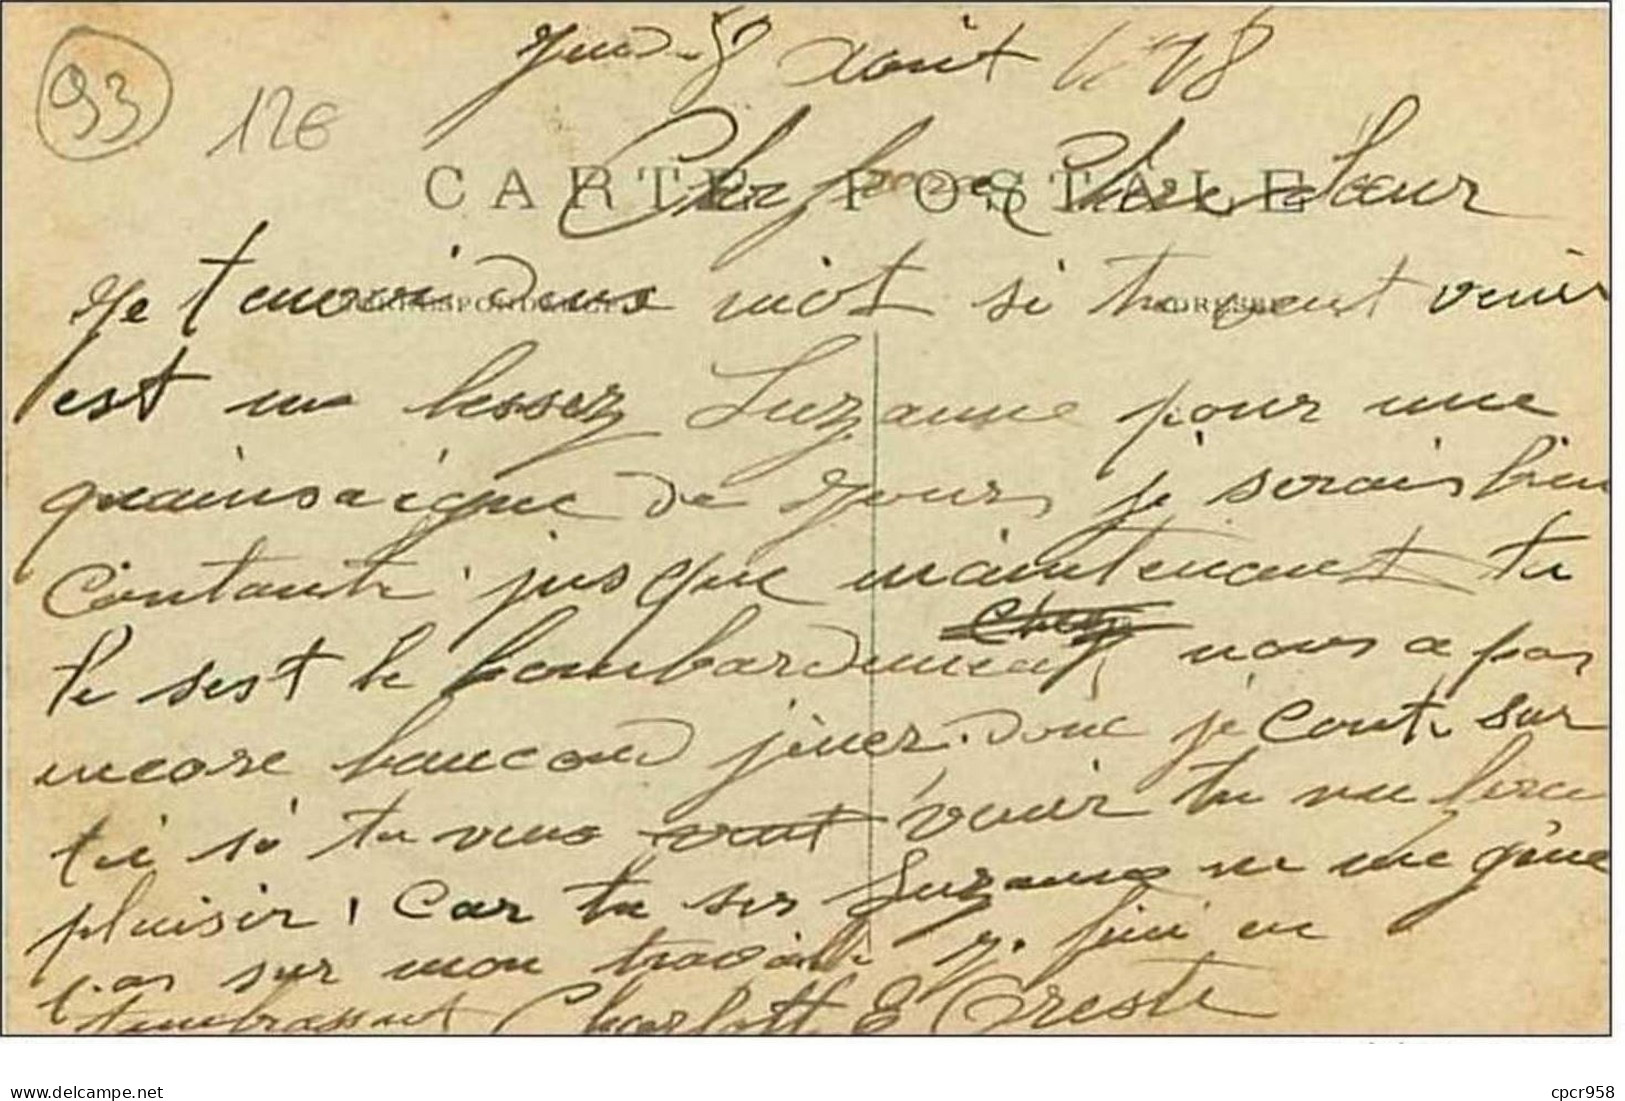 93
12€
Jeudi 8 Août 1918
CARTE POSTALE
Cher frere Chere Sœur
CORRESPONDANCE
ADRESSE
Je tenvoi deux mot si tu veut venir
est un lessez Suzanne pour une
quainsaigne de Jours je serais bien
Contante jusque maintenant tu
le sest le bombardement nous a pas
encore baucoud jener donc je conte sur
tu venir tu me fera
plaisir, Car tu ses Suzanne ne me gene
pas sur mon travaille Je fini en
tembrassant Charlotte & Oreste
cpcr958